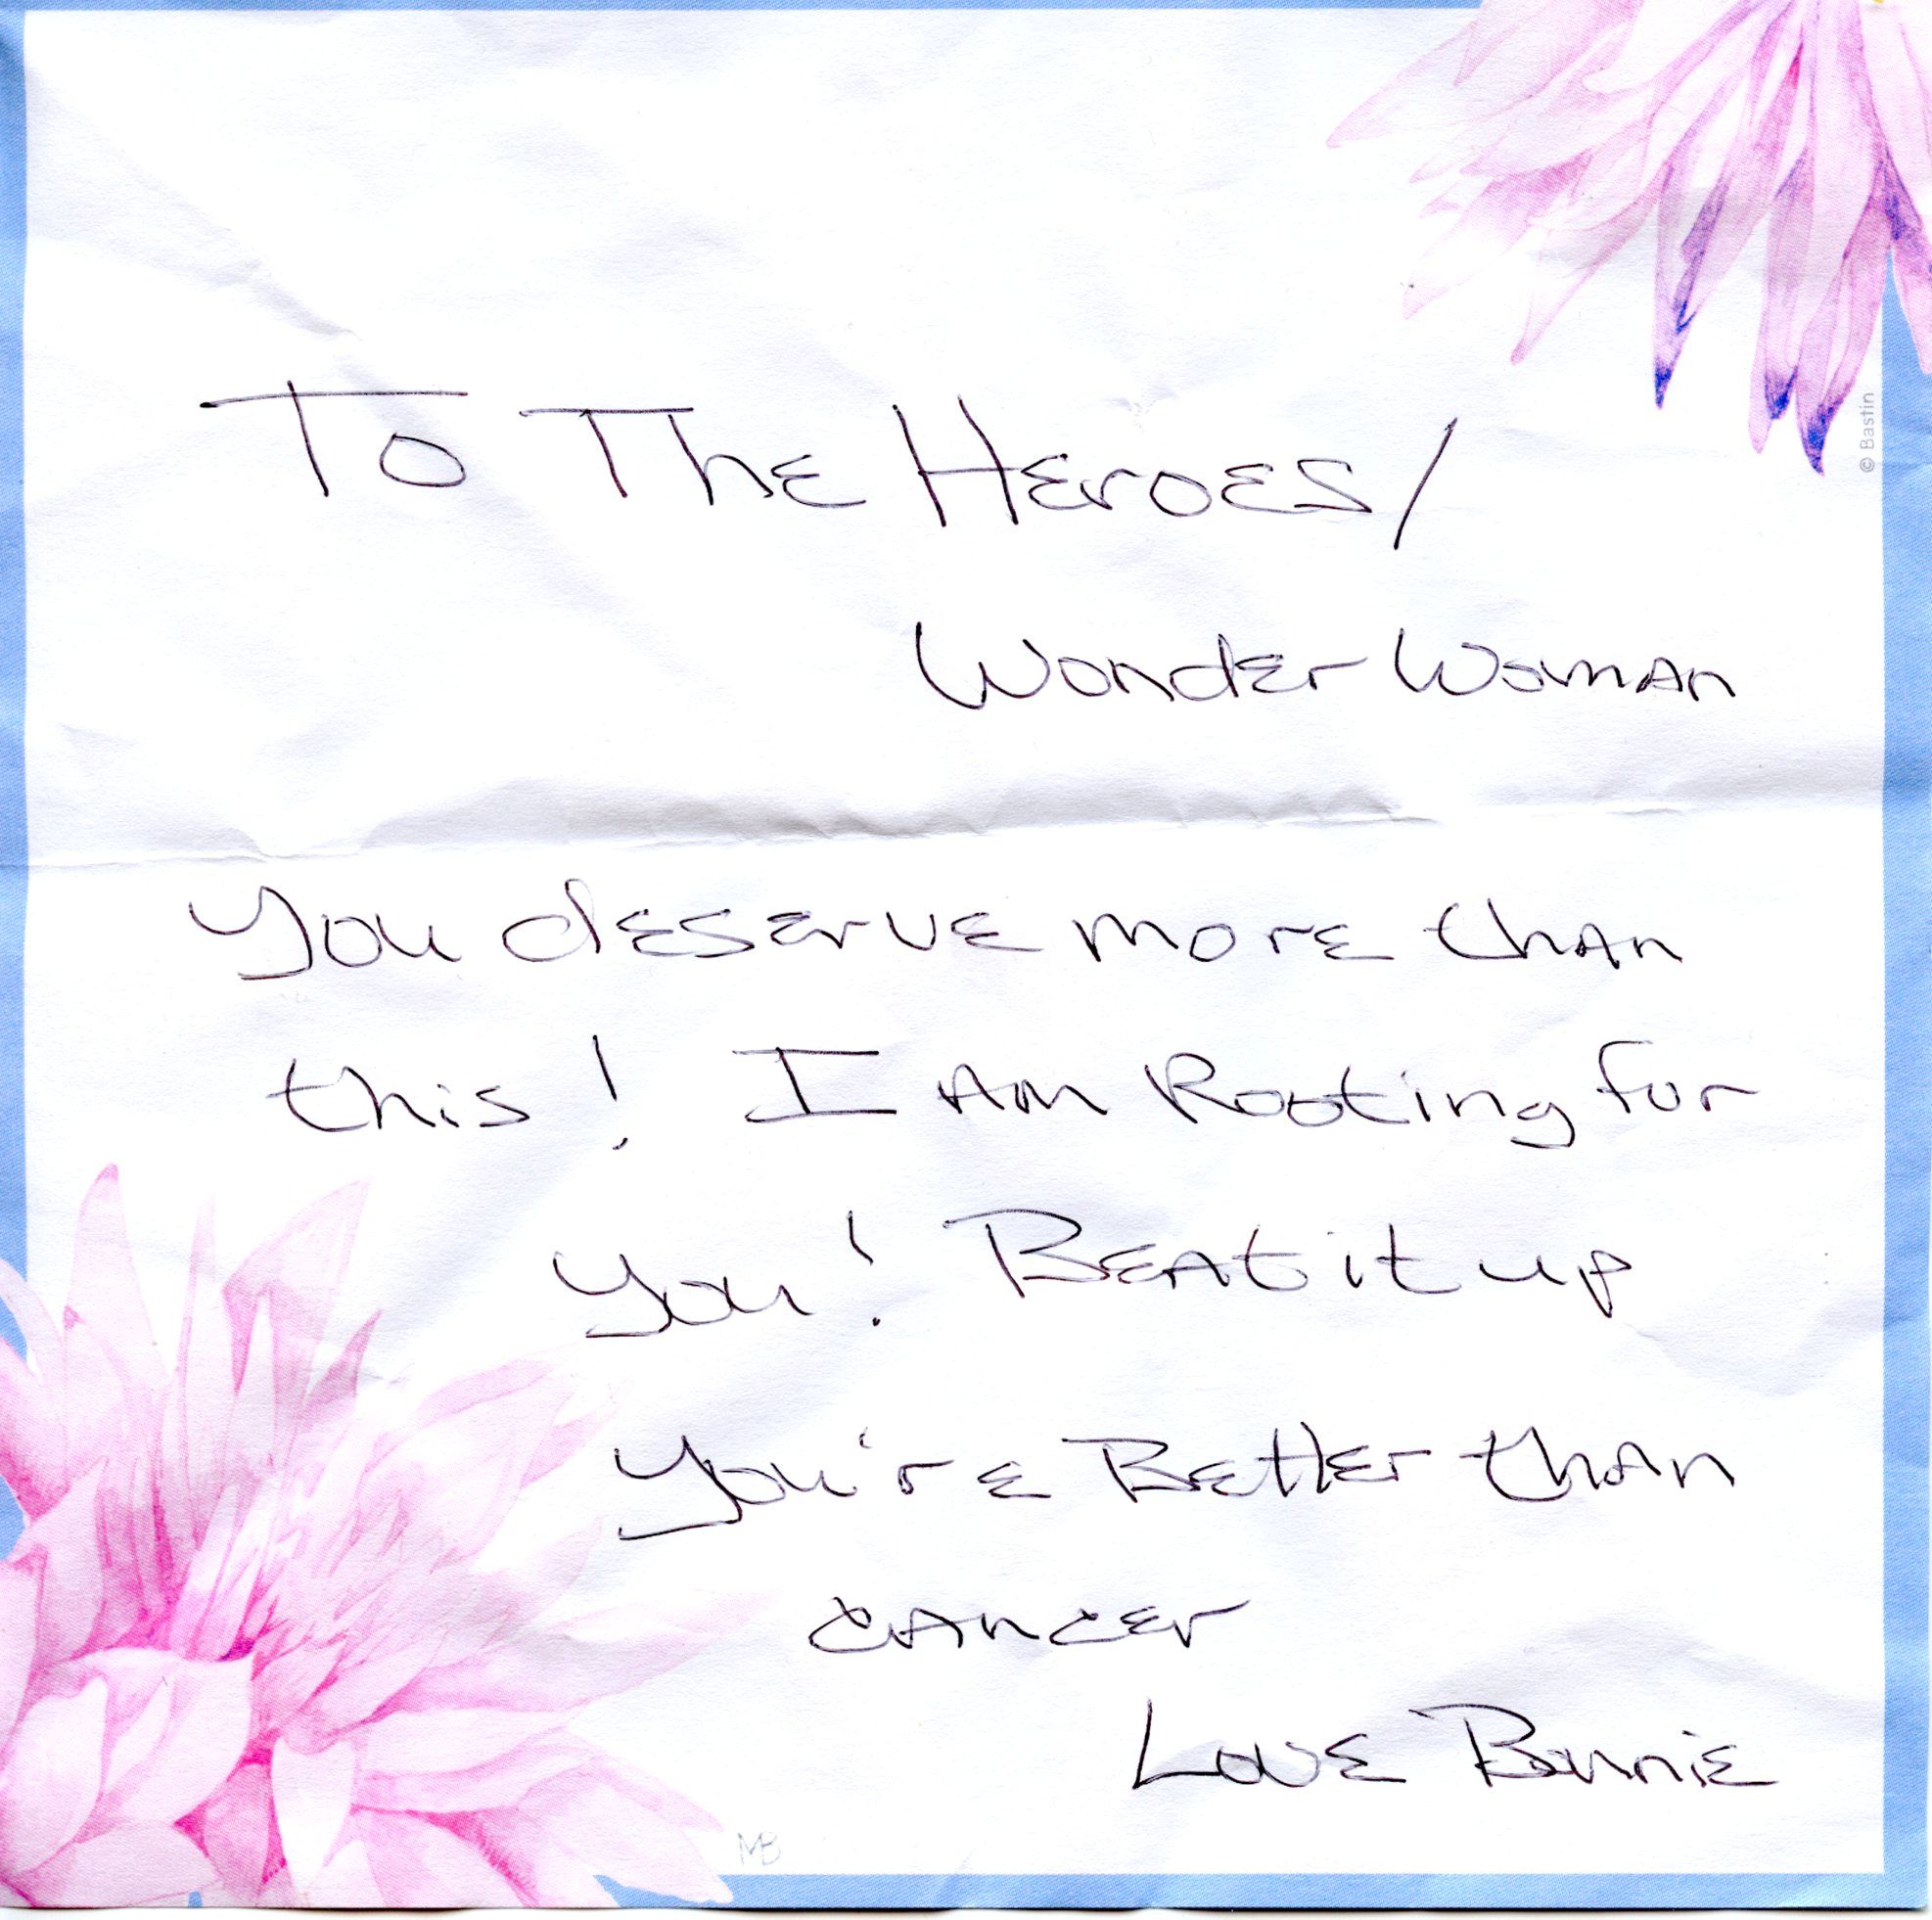 © Bastin
To The Heroes/
Wonder Woman
You deserve more than
this! I Am Rooting for
you! Beat it up
You're Better than
cancer
Love Bonnie
MB